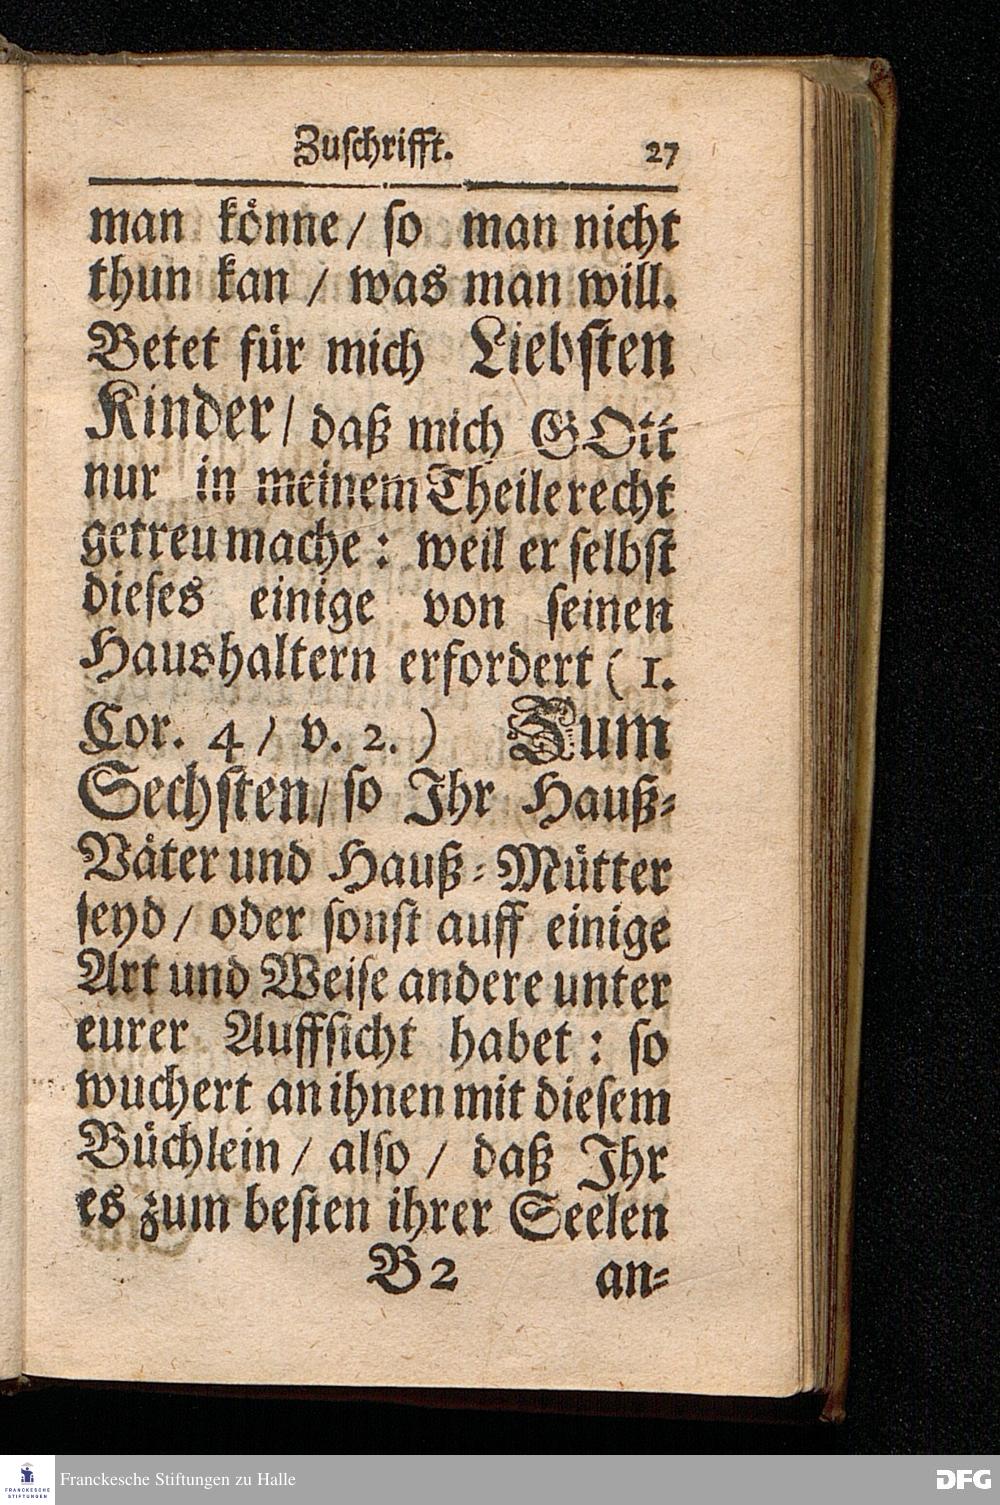 Zuschrifft. 27
man könne / so man nicht
thun kan / was man will.
Betet für mich Liebsten
Kinder / daß mich GOtt
nur in meinem Theile recht
getreu mache : weil er selbst
dieses einige von seinen
Haushaltern erfordert ( 1.
Cor. 4 / v. 2. ) Zum
Sechsten / so Ihr Hauß-
Väter und Hauß-Mütter
seyd / oder sonst auff einige
Art und Weise andere unter
eurer Auffsicht habet : so
wuchert an ihnen mit diesem
Büchlein / also / daß Ihr
es zum besten ihrer Seelen
B 2 an-
FRANCKESCHE
STIFTUNGEN
Franckesche Stiftungen zu Halle
DFG